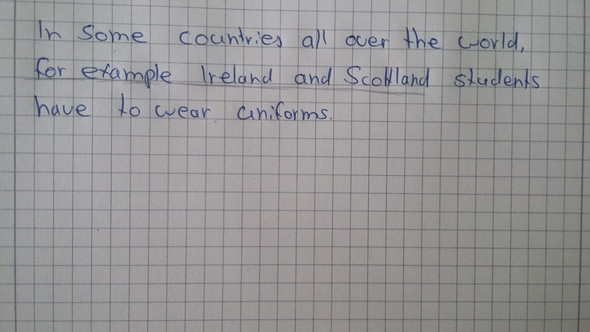 In some countries all over the world,
for example Ireland and Scotland students
have to wear uniforms.